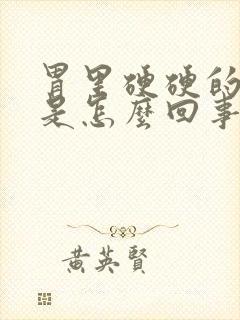 胃里硬硬的
是怎麼回事
黄英賢